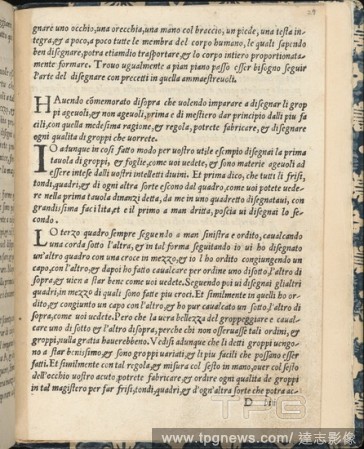 29
gnare uno occhio,una orecchia,una mano col braccio, un piede, una testa in-
tegra,& a poco,a poco tutte le membra del corpo humano, le quali sapendo
ben disegnare,potra etiamdio trasportare,& lo corpo intiero proportionata-
mente formare. Trovo ugualmente a pian piano posser esser bisogno seguir
l'arte del disegnare con precetti in quella ammaestreuoli.
HAuendo cōmemorato disopra che uolendo imparare a disegnar li grop
pi ageuoli,& non ageuoli,prima e di mestiero dar principio dalli piu fa
cili,con quella medesima ragione,& regola,potrete fabricare,& disegnare
ogni qualita di groppi che uorrete.
IO adunque in cosi fatto modo per uostro utile esempio disegnai la prima
tauola di groppi, & foglie,come uoi uedete, & sono materie ageuoli ad
essere intese dalli uostri intelletti diuini. Et prima dico,che tutti li frisi,
tondi,quadri,& di ogni altra sorte escono dal quadro,come uoi potete uede-
re nella prima tauola dinanzi detta, da me in uno quadretto disegnataui, con
grandissima facilita,et e il primo a man dritta, poscia ui disegnai lo se-
condo.
LO terzo quadro sempre seguendo a man sinistra e ordito, caualcando
una corda sotto l'altro,& in tal forma seguitando io ui ho disegnato
un'altro quadro con una croce in mezzo,& io l ho ordito congiungendo un
capo,con l'altro,& dapoi ho fatto caualcare per ordine uno disotto,l'altro di
sopra,& uien a star bene come uoi uedete. Seguendo poi ui disegnai glialtri
quadri,in mezzo di quali sono fatte piu croci. Et similmente in quelli ho or-
dito,& congiunto un capo con l'altro,& ho pur caualcato un sotto,l'altro di
sopra,come uoi uedete.Pero che la uera bellezza del groppeggiare e caual-
care uno di sotto,& l'altro disopra,perche chi non osseruasse tali ordini, &
groppi,nulla gratia hauerebbeno. Vedesi adunque che li detti groppi uengo-
no a star benissimo,& sono groppi uariati,& li piu facili che possano esser
fatti.Et similmente con tal regola,& misura col sesto in mano,ouer col sesto
dell'occhio uostro acuto,potrete fabricare,& ordire ogni qualita de groppi
in tal magistero per far frisi,tondi,quadri,& d'ogn'altra sorte che potra ac-
D
TPG
www.tpgnews.com/ 達志影像